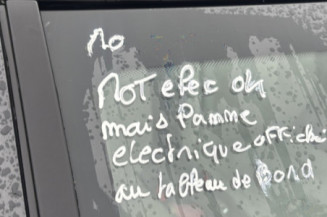 No
Mot elec ok
mais Panne
electrique affiche
au tableau de bord